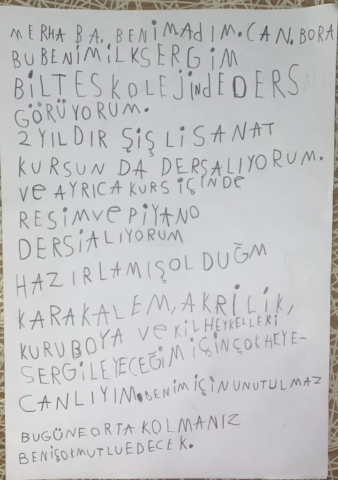 MERHABA. BENİMADIM.CAN.BORA
BUBENİMİLKSERGİM
BİLTESKOLEJİNdEDERS
GÖRÜYORUM.
2 YILDIR ŞİŞLİSANAT
KURSUN DA DERSALIYORUM.
Ve AYRICA KURSİÇİNDe
RESİMVePİYANO
DERSİALIYORUM
HAZIRLAMIŞOLDUĞM
KARAKALEM, AKRİLİK,
KURUBOYA Ve KİLHEYKELLERİ
SERGİLEYECEĞİMİÇİNÇOKHEYE-
CANLIYIM.BENİMİÇİNUNUTULMAZ
BUGÜNEORTAKOLMANIZ
BENİÇOKMUTLUEDECEK.